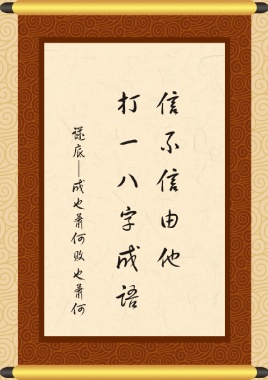 信不信由他
打一八字成语
谜底——成也萧何败也萧何